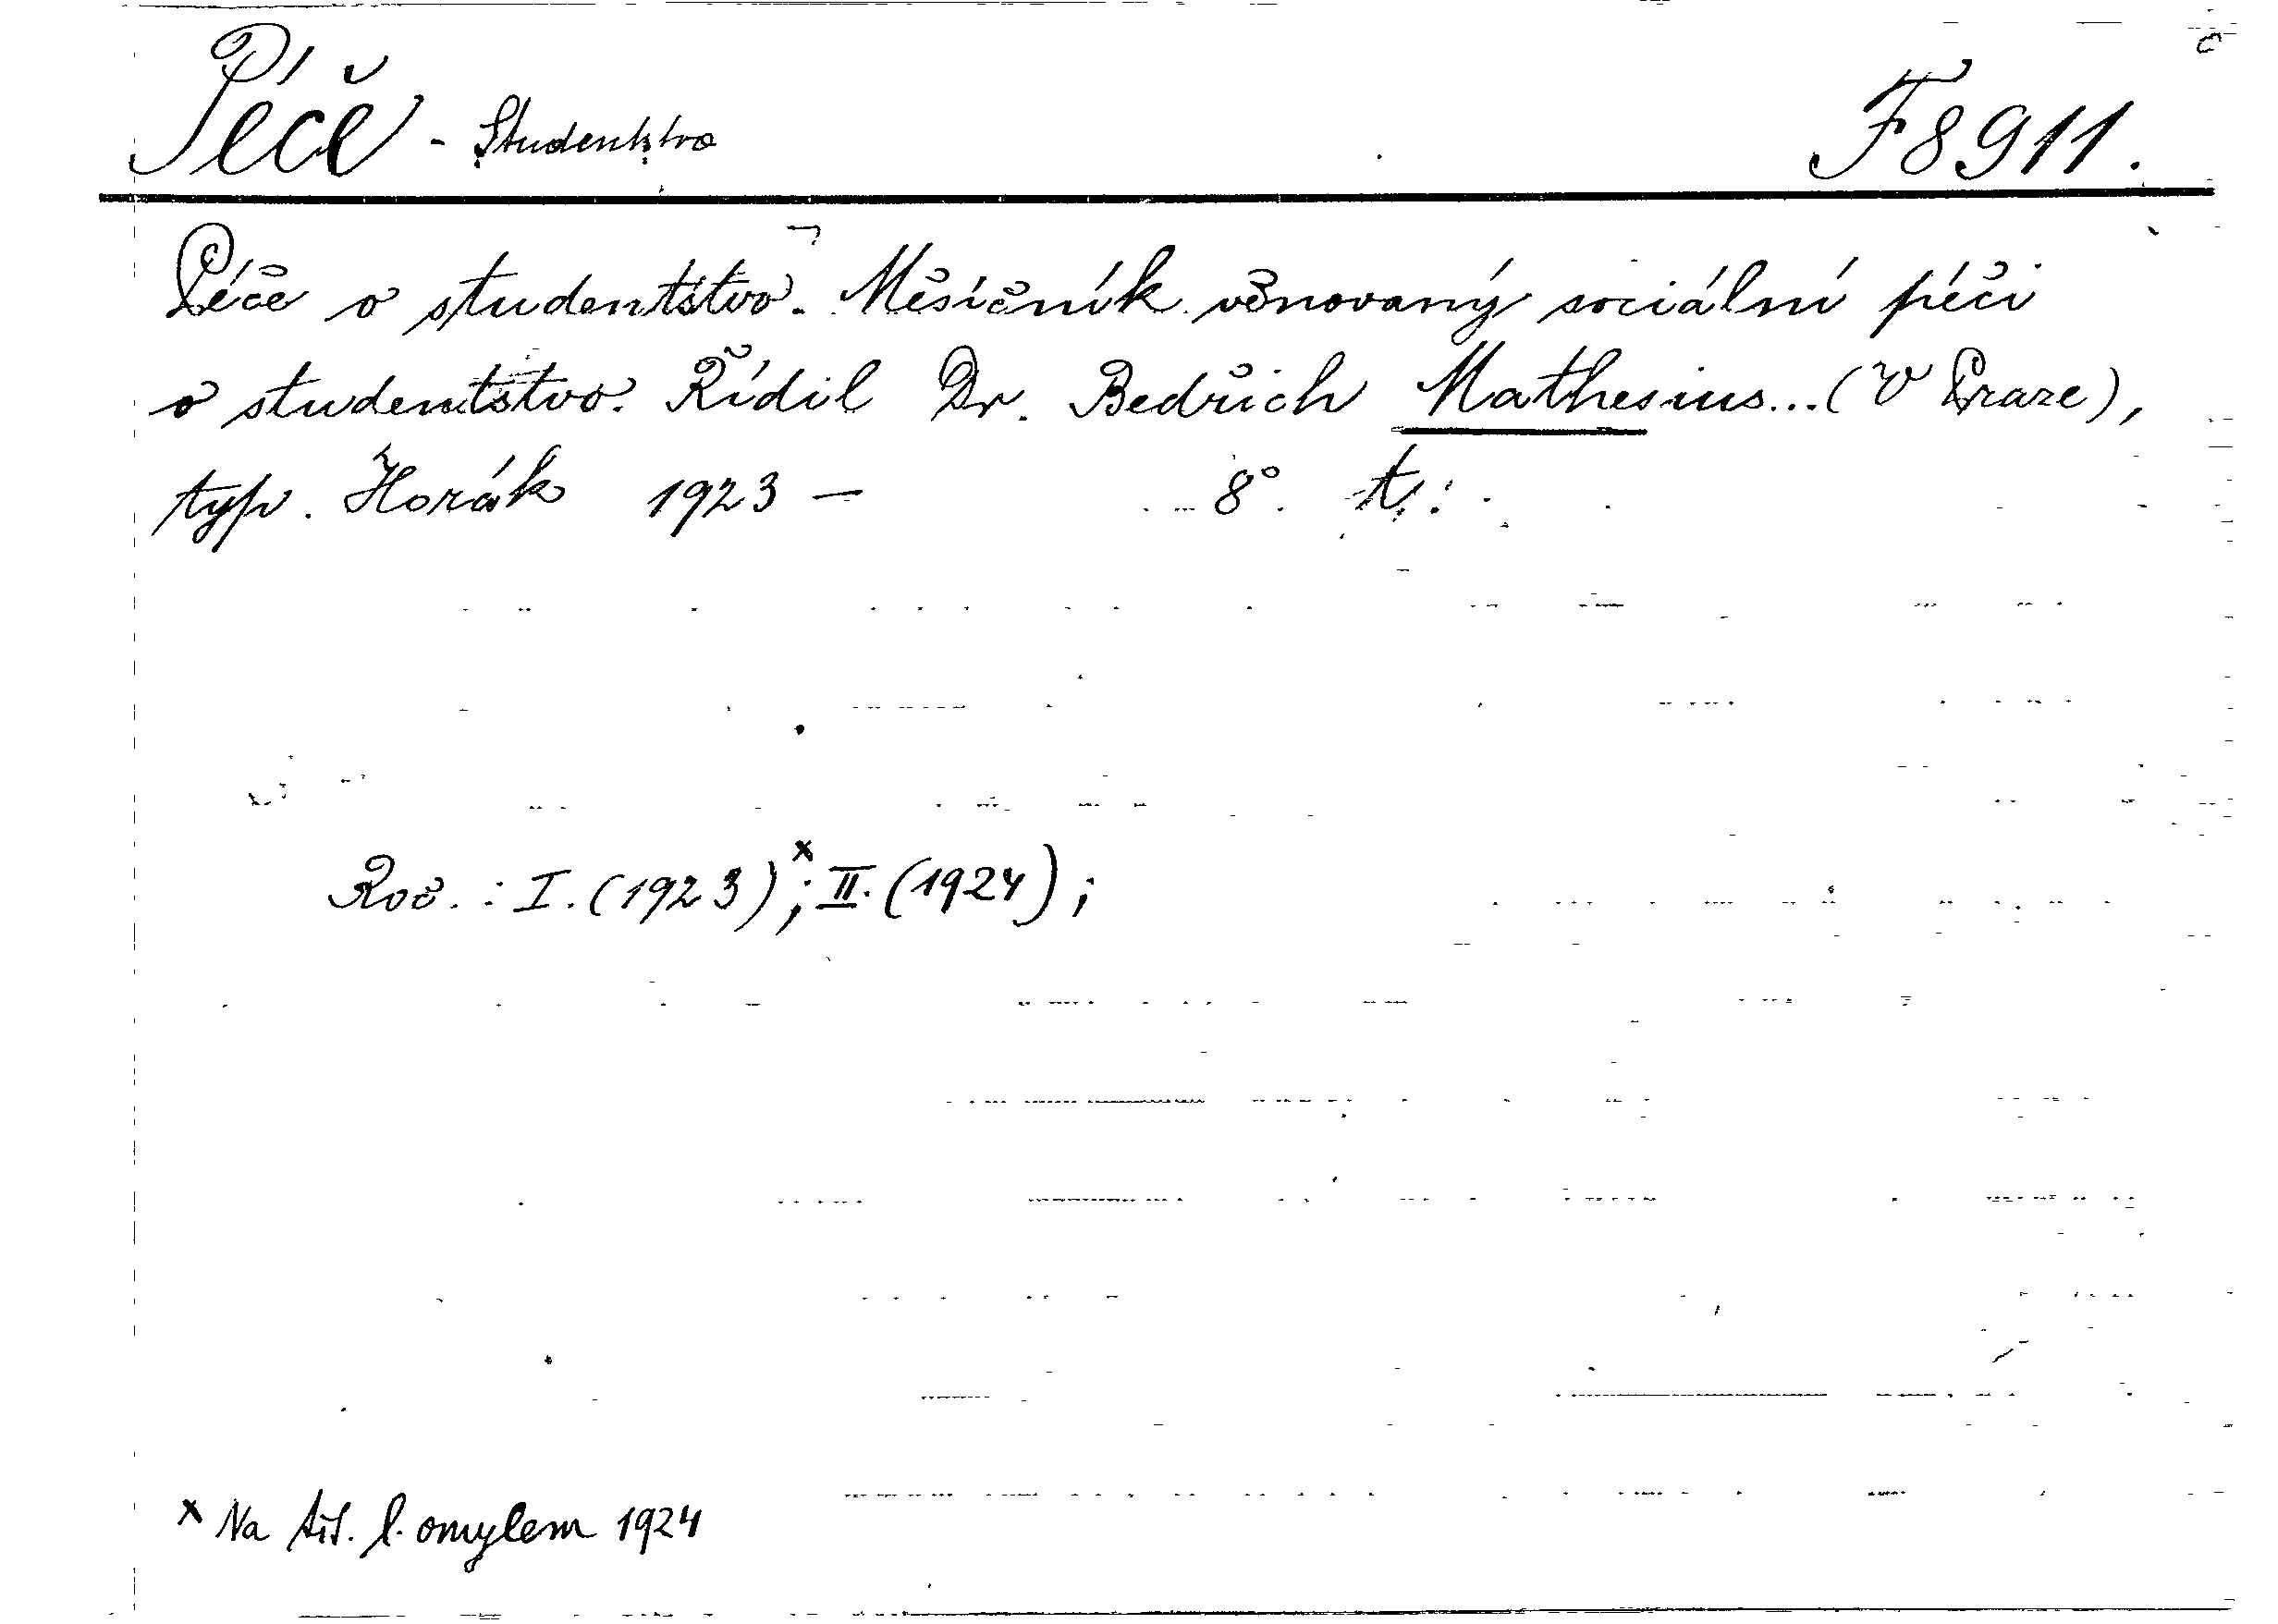 Péče - Studentstvo F 8911.
Péče o studentstvo. Měsíčník věnovaný sociální péči
o studentstvo. Řídil Dr. Bedřich Mathesius...(V Praze),
typ. Horák 1923 — 8°. t.:
Roč. : I. (1923)ˣ; II. (1924);
x Na tit. l. omylem 1924